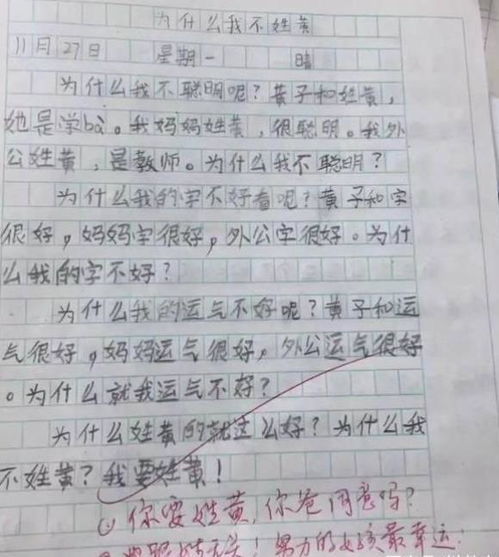 为什么我不姓黄
11月27日 星期一 晴
为什么我不聪明呢?黄子和姓黄,
她是学bà。我妈妈姓黄,很聪明。我外
公姓黄,是教师。为什么我不聪明?
为什么我的字不好看呢?黄子和字
很好,妈妈字很好,外公字很好。为什
么我的字不好?
为什么我的运气不好呢?黄子和运
气很好,妈妈运气很好,外公运气很好
。为什么就我运气不好?
为什么姓黄的就这么好?为什么我
不姓黄?我要姓黄!
你要姓黄,你爸同意吗?
努力的女孩最幸运